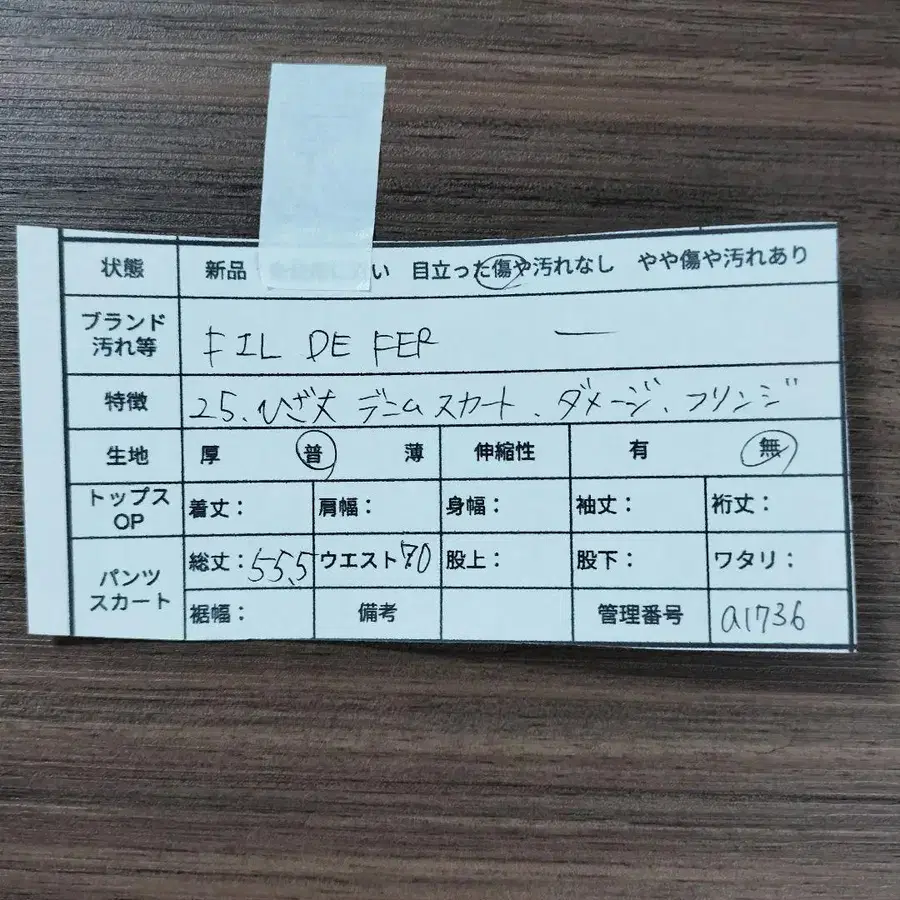 状態 新品 い 目立った傷や汚れなし やや傷や汚れあり
ブランド
汚れ等 FIL DE FER ー
特徴 25、ひざ丈 デニムスカート、ダメージ、フリンジ
生地 厚 普 薄 伸縮性 有 無
トップス
OP 着丈： 肩幅： 身幅： 袖丈： 裄丈：
パンツ
スカート 総丈：55.5 ウエスト70 股上： 股下： ワタリ：
裾幅： 備考 管理番号 a1736